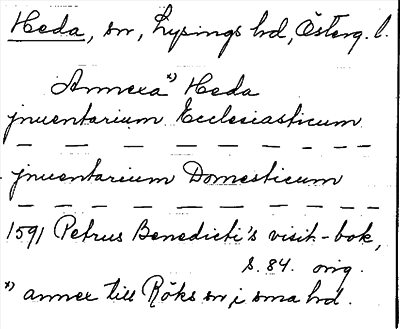 Heda, sn, Lysings hd, Österg. l.
Annexa *) Heda
jnventarium Ecclesiasticum
— — — — — — — — — —
jnventarium Domesticum
— — — — — — — — — —
1591 Petrus Benedicti's visit-bok,
s. 84. orig.
*) annex till Röks sn i sma hd.